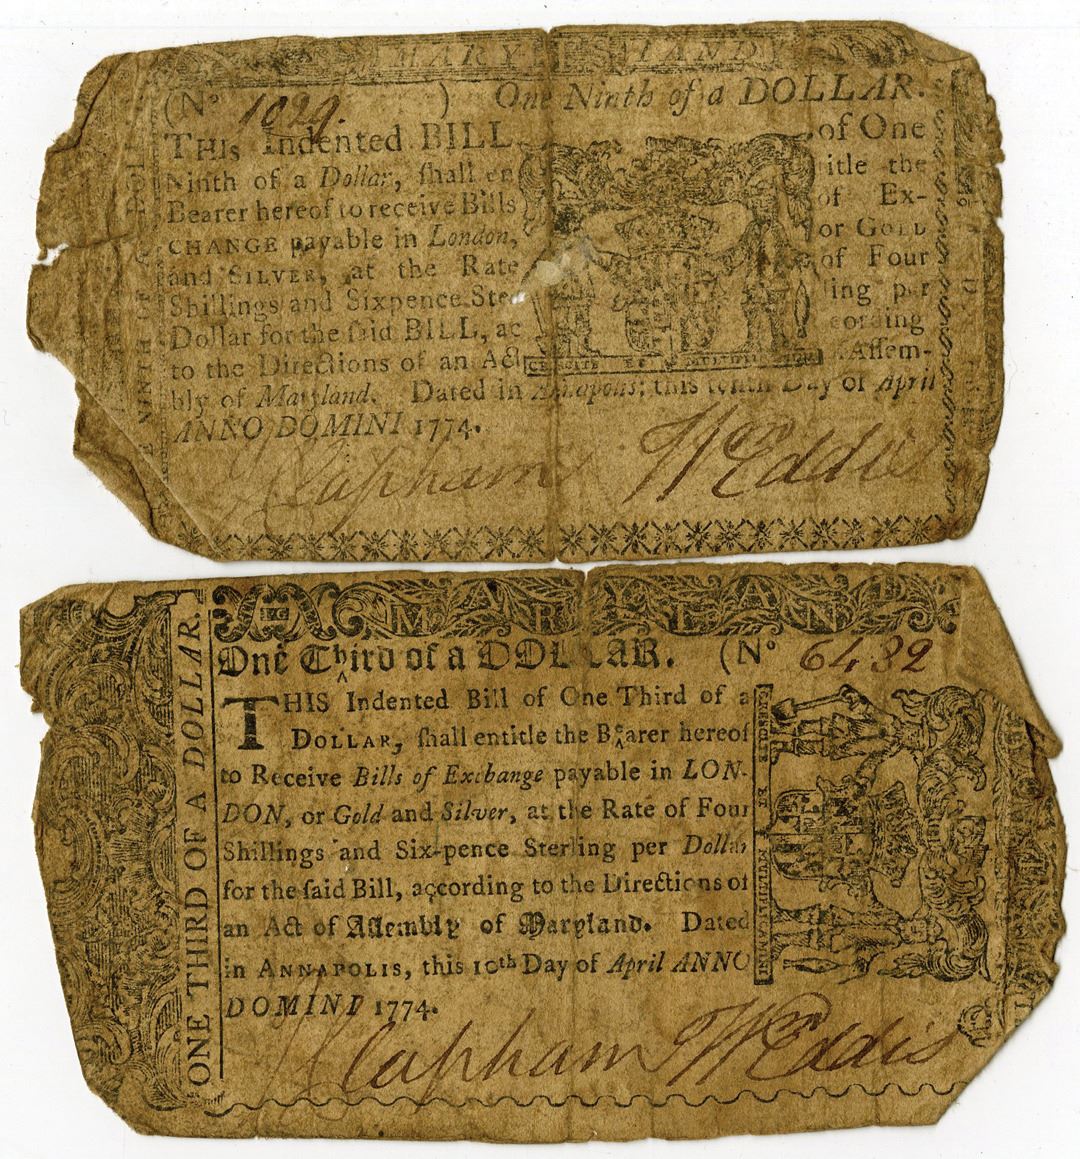 MARYLAND
(No 1029.) One Ninth of a DOLLAR.
THIS Indented BILL of One
Ninth of a Dollar, ſhall en itle the
Bearer hereof to receive Bills of Ex-
CHANGE payable in London, or GOLD
and SILVER, at the Rate of Four
Shillings and Sixpence Ste ling per
Dollar for the ſaid BILL, ac cording
to the Directions of an Act Aſſem-
bly of Maryland. Dated in this tenth Day of April
ANNO DOMINI 1774.
J Clapham Wm Eddis
MARYLAND
ONE THIRD OF A DOLLAR.
One Third of a DOLLAR. (No 6432
THIS Indented Bill of One Third of a
DOLLAR, ſhall entitle the Bearer hereof
to Receive Bills of Exchange payable in LON-
DON, or Gold and Silver, at the Rate of Four
Shillings and Six-pence Sterling per Dollar
for the ſaid Bill, according to the Directions of
an Act of Aſſembly of Maryland. Dated
in ANNAPOLIS, this 10th Day of April ANNO
DOMINI 1774.
CRESCITE ET MULTIPLICAMINI
J Clapham Wm Eddis